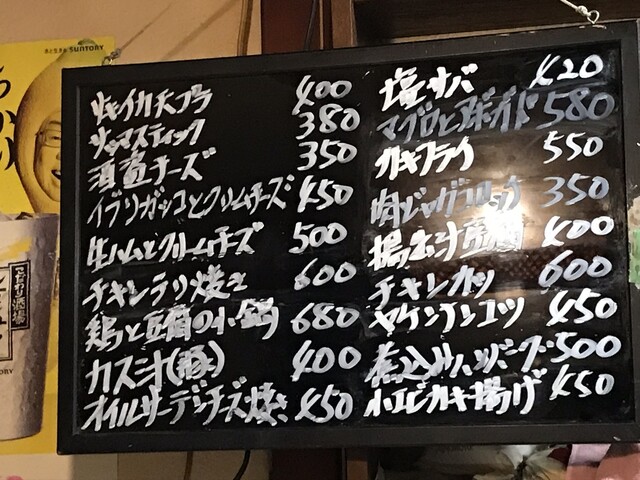 水と生きる SUNTORY
イカ天プラ 400
サツマスティック 380
酒盗チーズ 350
イブリガッコとクリームチーズ 450
生ハムとクリームチーズ 500
チキンテリ焼き 600
鶏と豆腐の小鍋 680
カス汁(豚) 400
オイルサーデンチーズ焼き 450
塩サバ 420
マグロとアボガド 580
カキフライ 550
肉ジャガコロッケ 350
揚出汁豆腐 400
チキンカツ 600
ヤゲンナンコツ 450
煮込みハンバーグ 500
小エビカキ揚げ 450
こだわり酒場